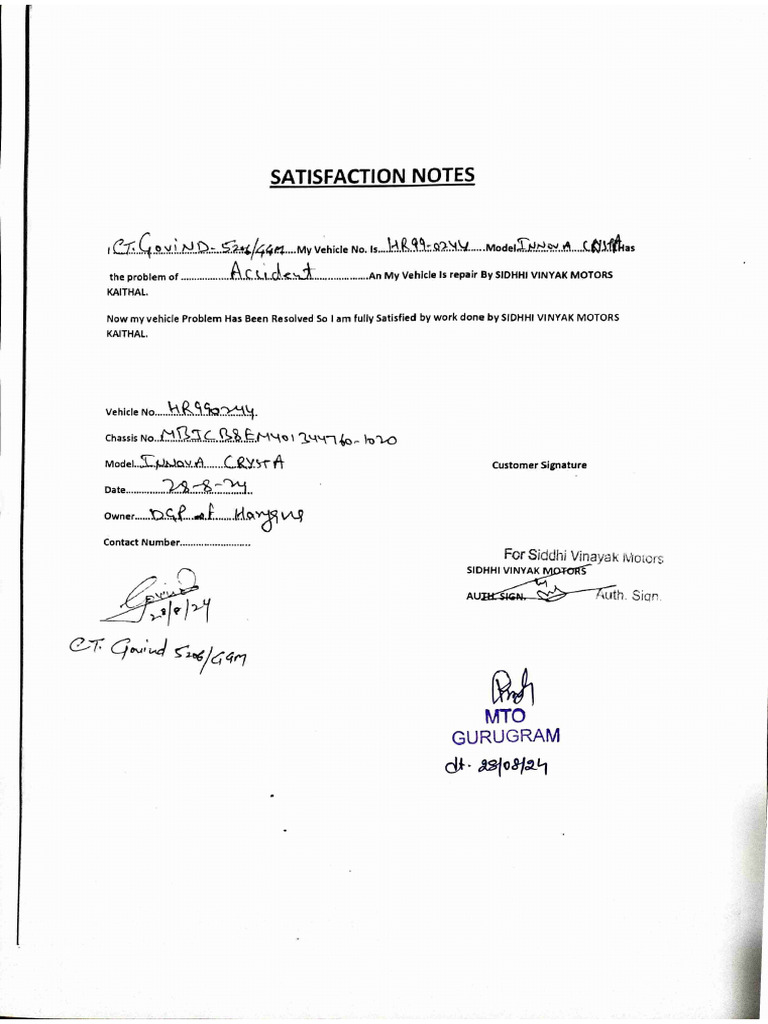 SATISFACTION NOTES
I CT. GOVIND - 5206/GGM My Vehicle No. Is HR99-0244 Model INNOVA CRYSTA Has
the problem of Accident An My Vehicle Is repair By SIDHHI VINYAK MOTORS
KAITHAL.
Now my vehicle Problem Has Been Resolved So I am fully Satisfied by work done by SIDHHI VINYAK MOTORS
KAITHAL.
Vehicle No. HR990244
Chassis No. MBJCB8EM401344760-1020
Model INNOVA CRYSTA
Customer Signature
Date 28-8-24
Owner DGP of Haryana
Contact Number
For Siddhi Vinayak Motors
SIDHHI VINYAK MOTORS
AUTH. SIGN. Auth. Sign.
Govind
28/8/24
CT. Govind 5206/GGM
MTO
GURUGRAM
dt. 28/08/24